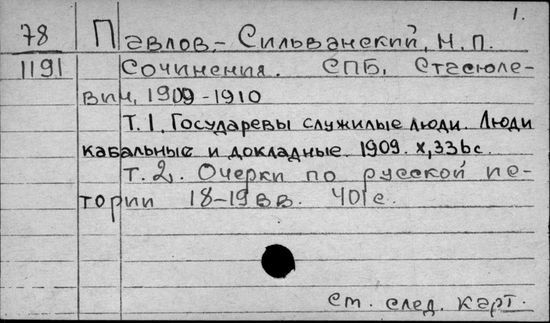 1.
78 Павлов-Сильванский, Н.П.
1191 Сочинения. СПБ, Стасюле-
вич, 1909-1910
Т.1. Государевы служилые люди. Люди
кабальные и докладные. 1909. X, 336с.
Т.2. Очерки по русской ис-
тории 18-19 вв. 401с.
см. след. карт.